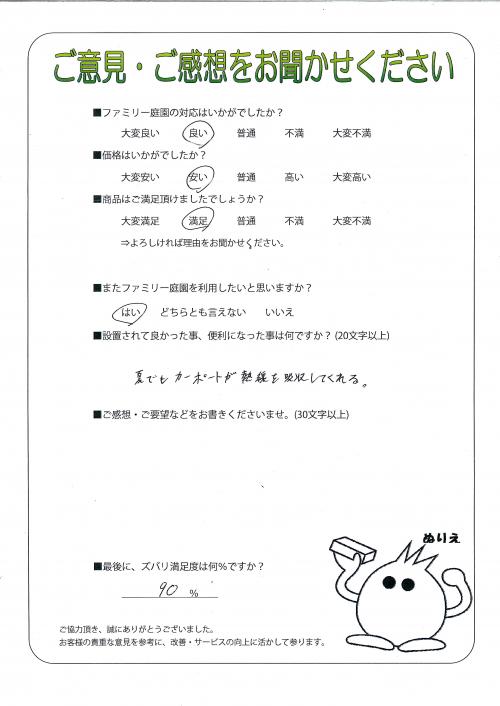 ご意見・ご感想をお聞かせください
■ファミリー庭園の対応はいかがでしたか？
大変良い 良い 普通 不満 大変不満
■価格はいかがでしたか？
大変安い 安い 普通 高い 大変高い
■商品はご満足頂けましたでしょうか？
大変満足 満足 普通 不満 大変不満
⇒よろしければ理由をお聞かせください。
■またファミリー庭園を利用したいと思いますか？
はい どちらとも言えない いいえ
■設置されて良かった事、便利になった事は何ですか？(20文字以上)
夏でもカーポートが熱線を吸収してくれる。
■ご感想・ご要望などをお書きくださいませ。(30文字以上)
ぬりえ
■最後に、ズバリ満足度は何％ですか？
90 %
ご協力頂き、誠にありがとうございました。
お客様の貴重な意見を参考に、改善・サービスの向上に活かして参ります。